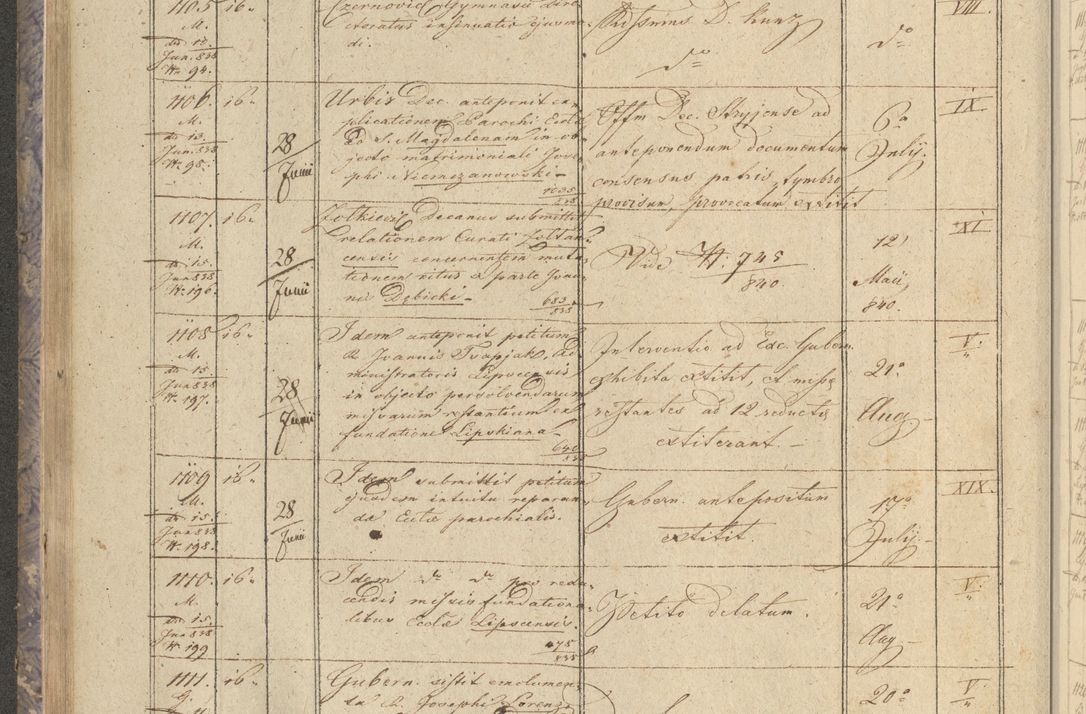 1105. 16.
M.
dto 12.
Jun. 838
N. 94.
Czernovic Gymnasii dire
cteratus insinuatio ejusmo
di.
D. Kunz
dto
dto
VIII.
1106. 16.
M.
dto 13.
Jun. 838
N. 95.
28
Junii
Urbis Dec. anteponit ex
plicationem Parochi Eccl.
ad S. Magdalenam in ob
jecto matrimoniali Jose
phi Niemczanowski
1035
838
Offm Dec. Stryjense ad
anteponendum documentum
consensus patris, tymbro
provisum, provocatum extitit
6a
Julij.
IX.
1107. 16.
M.
dto 15.
Jun 838
N. 196.
28
Junii
Zolkiew Decanus submittit
relationem Curati Zoltan
censis concernentem muta
tionem ritus a parte Joan
nis Dębicki
683
838
Vide N. 745
840.
12
Maii,
840.
XI.
1108. 16.
M.
dto 15
Jun 838
N. 197.
28
Junii
Idem anteponit petitum
R. Joannis Trapjak, Ad
ministratoris Lipscensis
in objecto persolvendarum
missarum restantium ex
fundatione Lipskiana
640
838
Interventio ad Exc. Gubern.
exhibita extitit, et missae
restantes ad 12 reductae
extiterant
21a
Aug
V.
1109 16.
M.
dto 15.
Jun 838
N. 198.
28
Junii
Idem submittit petitum
ejusdem intuitu reparan
dae Eclae parochialis.
Gubern. antepositum
extitit.
17a
Julij
XIX.
1110. 16.
M.
dto 15.
Jun 838
N. 199
Idem dto dto pro redu
cendis missis fundationa
libus Ecclae Lipscensis.
475
838
Petito delatum.
21a
Aug
V.
1111. 16.
G.
Gubern. sistit emolumen
ta Josephi Lorenz
20a
V.